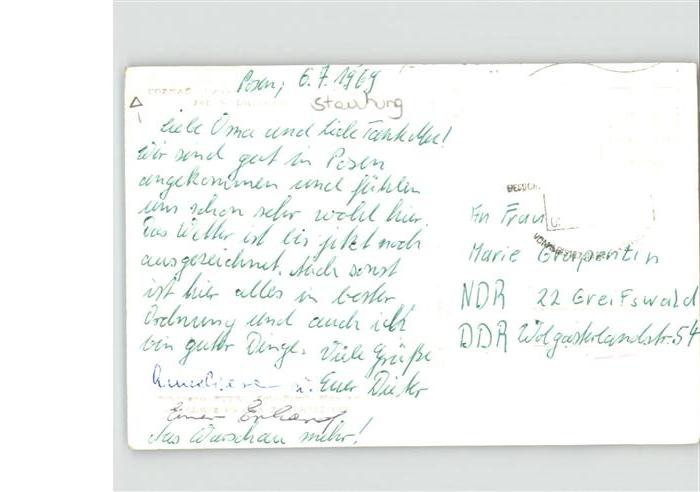 Posen, 6.7.1969
Liebe Oma und liebe Tante
Wir sind gut in Posen
angekommen und fühlen
uns schon sehr wohl hier.
Das Wetter ist bis jetzt noch
ausgezeichnet. Auch sonst
ist hier alles in bester
Ordnung und auch ich
bin guter Dinge. Viele Grüße
u. Euer Dieter
Euer Erhard
Aus Warschau mehr!
An Frau
Marie Grapentin
NDR 22 Greifswald
DDR Wolgasterlandstr. 54